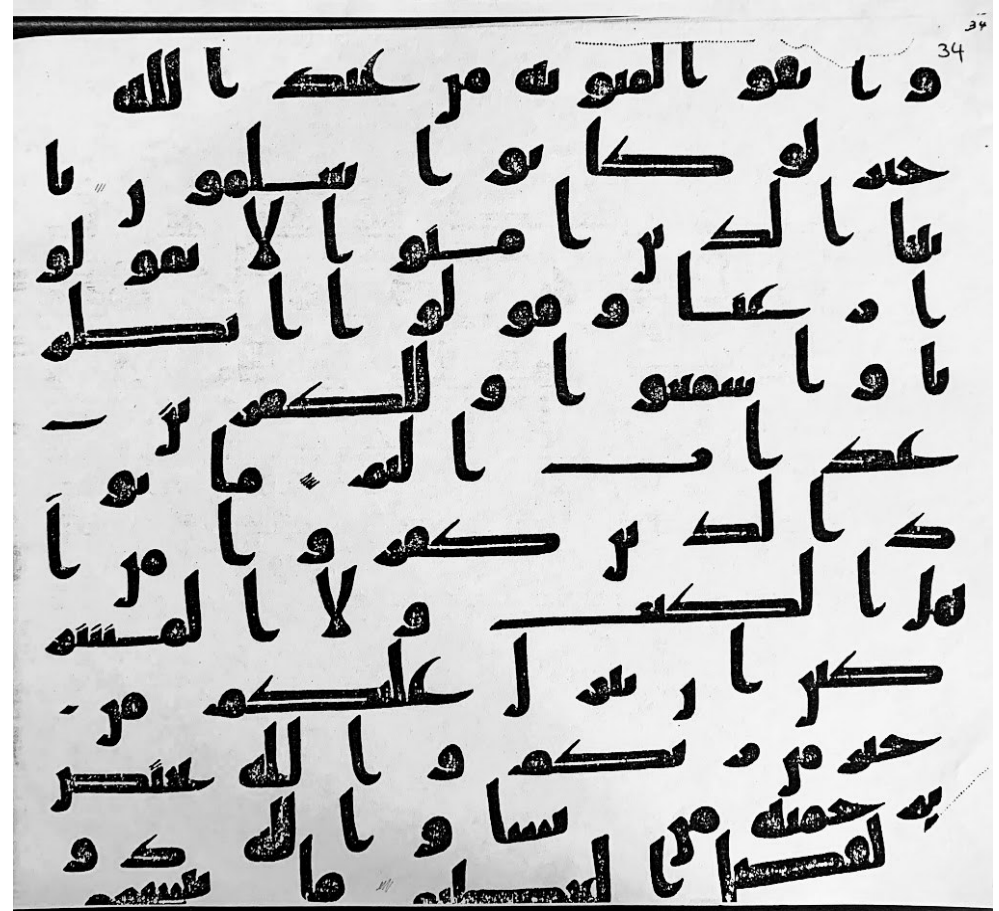 34
34
واتقوا لمثوبه من عند الله
خير لو كانوا يعلمون يا
يها الذين امنوا لا تقولو
ا رعنا وقولوا انظر
نا واسمعوا وللكفرين
عذاب اليم ما يو
د الذين كفروا من ا
هل الكتب ولا المشر
كين ان ينزل عليكم من
خير من ربكم والله يختص
برحمته من يشا والله ذو
الفضل العظيم ما ننسخ